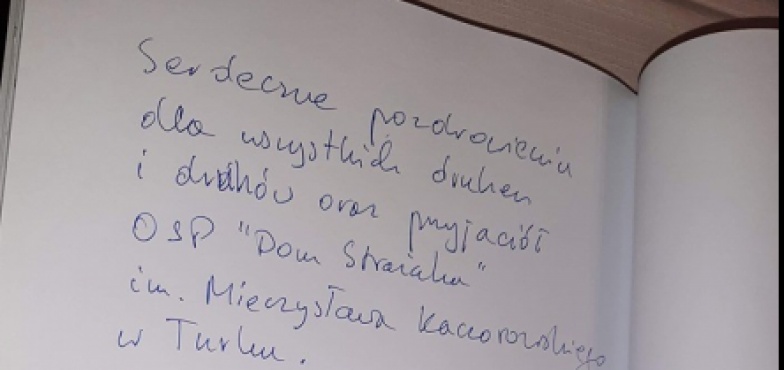 Serdeczne pozdrowienia
dla wszystkich druhen
i druhów oraz przyjaciół
OSP "Dom Strażaka"
im. Mieczysława Kaczorowskiego
w Turku.